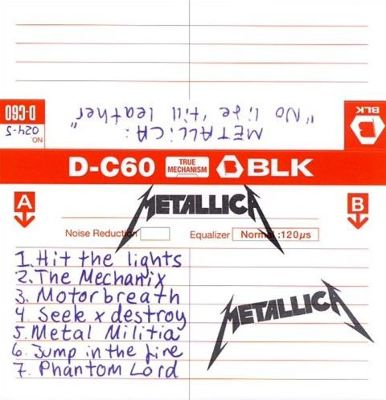 METALLICA:
"No life 'till leather"
D-C60
NO.
024-5
BLK
D-C60 TRUE MECHANISM BLK
METALLICA
A
B
Noise Reduction
Equalizer Normal :120µs
1. Hit the lights
2. The Mechanix
3. Motorbreath
4. Seek x destroy
5. Metal Militia
6. Jump in the fire
7. Phantom Lord
METALLICA